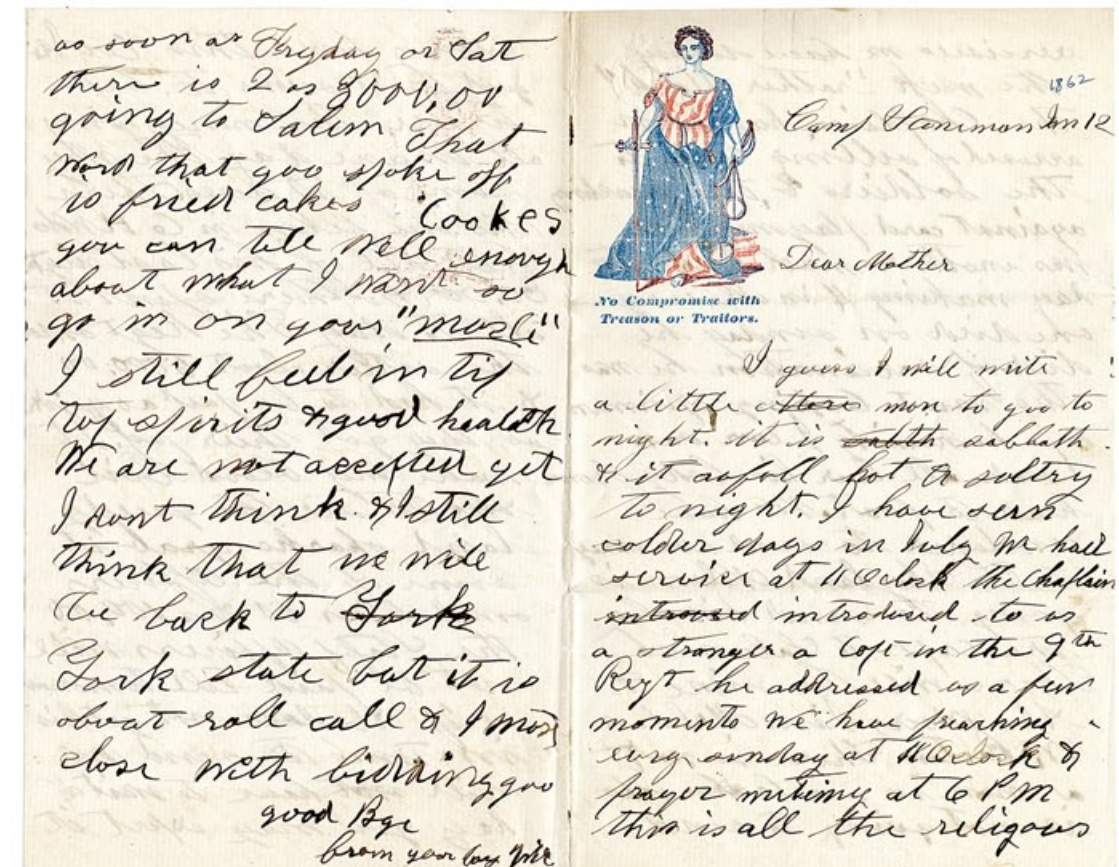 as soon as Fryday or Satt
there is 2 as 3000,00
going to Salem That
word that you spoke off
is fried cakes Cookes
you can tell well enough
about what I want so
go in on your "
I still feele in tip
top spirits & good heal
We are not accepted yet
I dont think. & I still
think that we will
be back to York
York state but it is
about roll call & I
close with bidding you
good Bye
from your boy
1862
Camp Stoneman Jan 12
Dear Mother
No Compromise with
Treason or Traitors.
I guess I will write
a little more to you to
night. it is sabbath
& it aufoll hot & sultry
to night. I have seen
colder days in July We had
service at 11 Oclock the Chaplain
introduced to us
a stranger a Copt in the 9th
Regt he addressed us a few
moments We have preaching
evry sunday at 11 Oclock &
prayer meting at 6 PM
this is all the religous